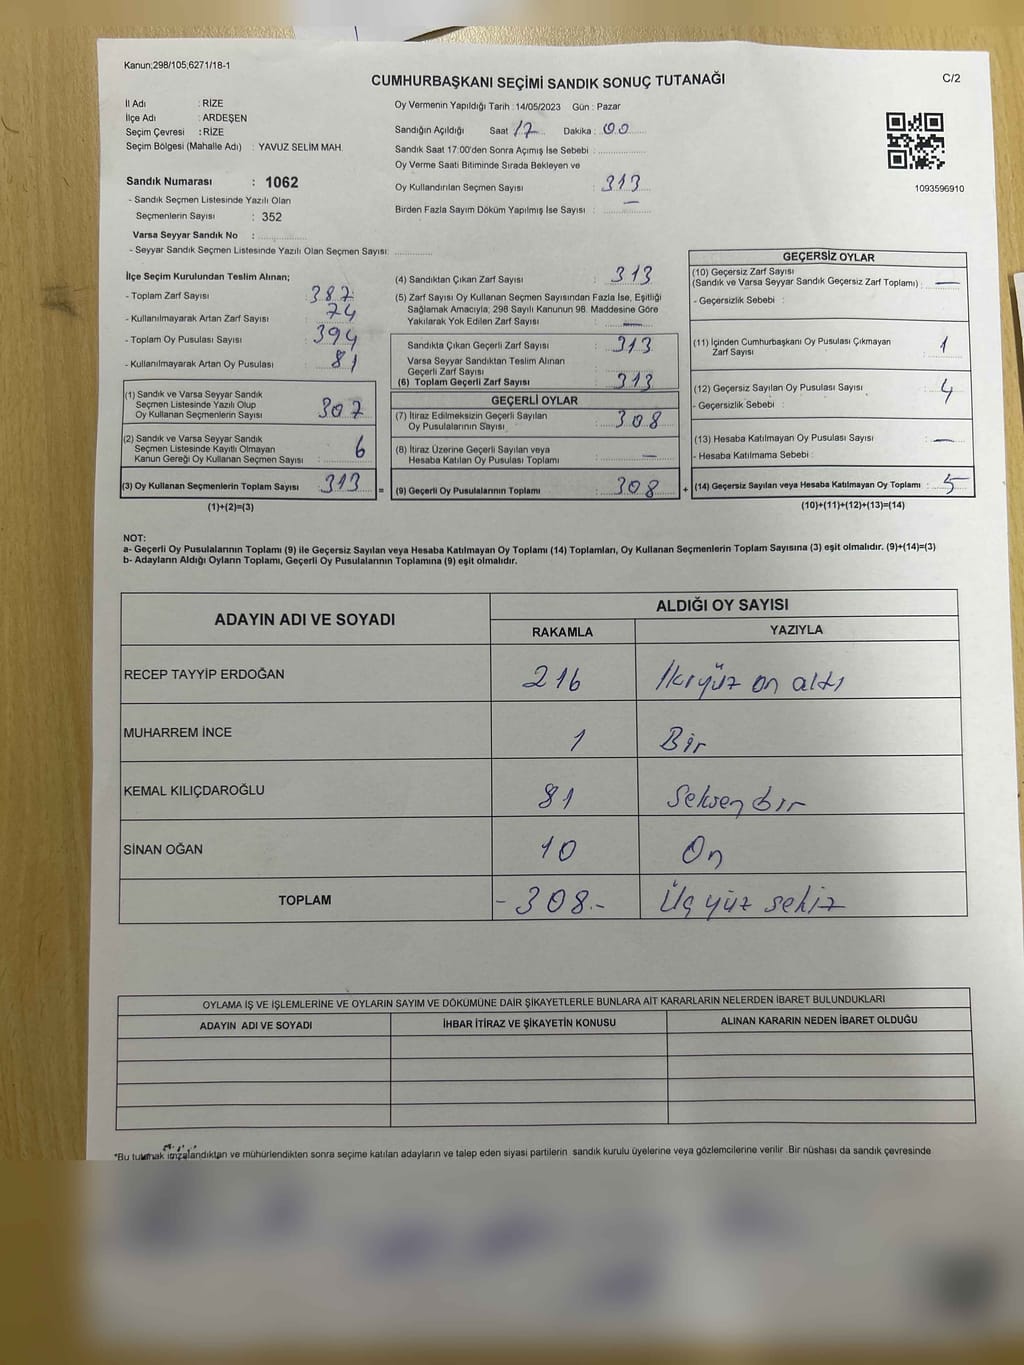 Kanun;298/105;6271/18-1
CUMHURBAŞKANI SEÇİMİ SANDIK SONUÇ TUTANAĞI
C/2
İl Adı : RİZE
İlçe Adı : ARDEŞEN
Seçim Çevresi : RİZE
Seçim Bölgesi (Mahalle Adı) : YAVUZ SELİM MAH.
Sandık Numarası : 1062
- Sandık Seçmen Listesinde Yazılı Olan
Seçmenlerin Sayısı : 352
Varsa Seyyar Sandık No :
- Seyyar Sandık Seçmen Listesinde Yazılı Olan Seçmen Sayısı:
Oy Vermenin Yapıldığı Tarih : 14/05/2023 Gün : Pazar
Sandığın Açıldığı Saat : 17 Dakika : 00
Sandık Saat 17:00'den Sonra Açımış İse Sebebi :
Oy Verme Saati Bitiminde Sırada Bekleyen ve
Oy Kullandırılan Seçmen Sayısı : 313
Birden Fazla Sayım Döküm Yapılmış İse Sayısı : —
1093596910
İlçe Seçim Kurulundan Teslim Alınan;
- Toplam Zarf Sayısı : 387
- Kullanılmayarak Artan Zarf Sayısı : 74
- Toplam Oy Pusulası Sayısı : 394
- Kullanılmayarak Artan Oy Pusulası : 81
(1) Sandık ve Varsa Seyyar Sandık
Seçmen Listesinde Yazılı Olup
Oy Kullanan Seçmenlerin Sayısı : 307
(2) Sandık ve Varsa Seyyar Sandık
Seçmen Listesinde Kayıtlı Olmayan
Kanun Gereği Oy Kullanan Seçmen Sayısı : 6
(3) Oy Kullanan Seçmenlerin Toplam Sayısı : 313
(1)+(2)=(3)
(4) Sandıktan Çıkan Zarf Sayısı : 313
(5) Zarf Sayısı Oy Kullanan Seçmen Sayısından Fazla İse, Eşitliği
Sağlamak Amacıyla; 298 Sayılı Kanunun 98. Maddesine Göre
Yakılarak Yok Edilen Zarf Sayısı : —
Sandıkta Çıkan Geçerli Zarf Sayısı : 313
Varsa Seyyar Sandıktan Teslim Alınan
Geçerli Zarf Sayısı :
(6) Toplam Geçerli Zarf Sayısı : 313
GEÇERLİ OYLAR
(7) İtiraz Edilmeksizin Geçerli Sayılan
Oy Pusulalarının Sayısı : 308
(8) İtiraz Üzerine Geçerli Sayılan veya
Hesaba Katılan Oy Pusulası Toplamı : —
= (9) Geçerli Oy Pusulalarının Toplamı : 308
GEÇERSİZ OYLAR
(10) Geçersiz Zarf Sayısı
(Sandık ve Varsa Seyyar Sandık Geçersiz Zarf Toplamı) : —
- Geçersizlik Sebebi :
(11) İçinden Cumhurbaşkanı Oy Pusulası Çıkmayan
Zarf Sayısı : 1
(12) Geçersiz Sayılan Oy Pusulası Sayısı : 4
- Geçersizlik Sebebi :
(13) Hesaba Katılmayan Oy Pusulası Sayısı : —
- Hesaba Katılmama Sebebi :
+ (14) Geçersiz Sayılan veya Hesaba Katılmayan Oy Toplamı : 5
(10)+(11)+(12)+(13)=(14)
NOT:
a- Geçerli Oy Pusulalarının Toplamı (9) ile Geçersiz Sayılan veya Hesaba Katılmayan Oy Toplamı (14) Toplamları, Oy Kullanan Seçmenlerin Toplam Sayısına (3) eşit olmalıdır. (9)+(14)=(3)
b- Adayların Aldığı Oyların Toplamı, Geçerli Oy Pusulalarının Toplamına (9) eşit olmalıdır.
ADAYIN ADI VE SOYADI ALDIĞI OY SAYISI
RAKAMLA YAZIYLA
RECEP TAYYİP ERDOĞAN 216 İkiyüz on altı
MUHARREM İNCE 1 Bir
KEMAL KILIÇDAROĞLU 81 Seksen bir
SİNAN OĞAN 10 On
TOPLAM -308.- Üçyüz sekiz
OYLAMA İŞ VE İŞLEMLERİNE VE OYLARIN SAYIM VE DÖKÜMÜNE DAİR ŞİKAYETLERLE BUNLARA AİT KARARLARIN NELERDEN İBARET BULUNDUKLARI
ADAYIN ADI VE SOYADI İHBAR İTİRAZ VE ŞİKAYETİN KONUSU ALINAN KARARIN NEDEN İBARET OLDUĞU
*Bu tutanak imzalandıktan ve mühürlendikten sonra seçime katılan adayların ve talep eden siyasi partilerin sandık kurulu üyelerine veya gözlemcilerine verilir. Bir nüshası da sandık çevresinde